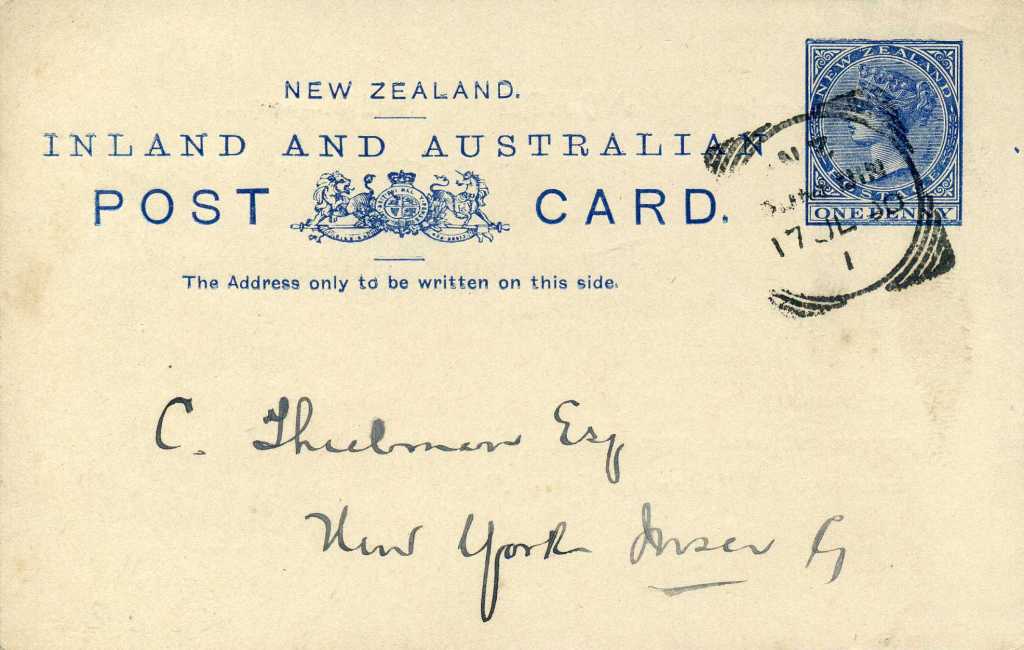 NEW ZEALAND.
INLAND AND AUSTRALIAN
POST CARD.
The Address only to be written on this side.
NEW ZEALAND
ONE PENNY
17 JL 90
1
C. Thielman Esq
New York